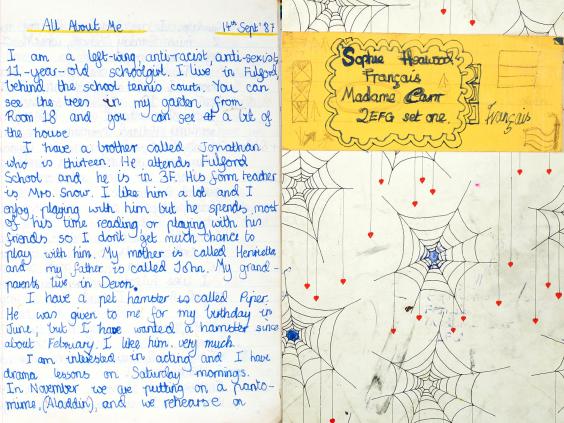 All About Me 14th Sept '87
I am a left-wing, anti-racist, anti-sexist,
11-year-old schoolgirl. I live in Fulford,
behind the school tennis courts. You can
see the trees in my garden from
Room 18 and you can see a bit of
the house
I have a brother called Jonathan
who is thirteen. He attends Fulford
School and he is in 3F. His form teacher
is Mrs. Snow. I like him a lot and I
enjoy playing with him but he spends most
of his time reading or playing with his
friends so I don't get much chance to
play with him. My mother is called Henrietta
and my father is called John. My grand-
parents live in Devon.
I have a pet hamster is called Piper.
He was given to me for my birthday in
June, but I have wanted a hamster since
about February. I like him very much.
I am interested in acting and I have
drama lessons on Saturday mornings.
In November we are putting on a panto-
mime, (Aladdin), and we rehearse on
Sophie Heawood
Français
Madame Carr
2EFG set one.
Français